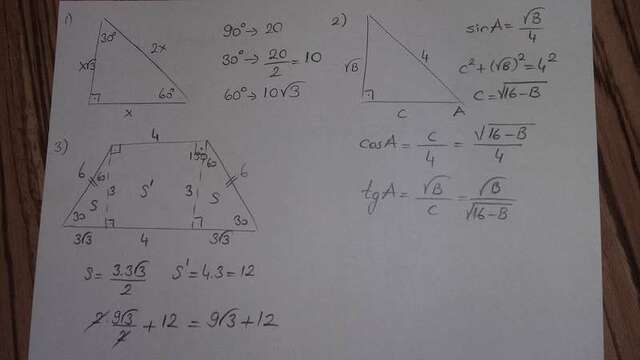 1)
30°
x√3
2x
60°
x
90° → 20
30° → 20/2 = 10
60° → 10√3
2)
√B
4
c
A
sinA = √B/4
c² + (√B)² = 4²
c = √16-B
cosA = c/4 = √16-B/4
tgA = √B/c = √B/√16-B
3)
4
6
60
3
S'
3
60
6
S
S
30
30
3√3
4
3√3
S = 3.3√3/2
S' = 4.3 = 12
2.9√3/2 + 12 = 9√3 + 12